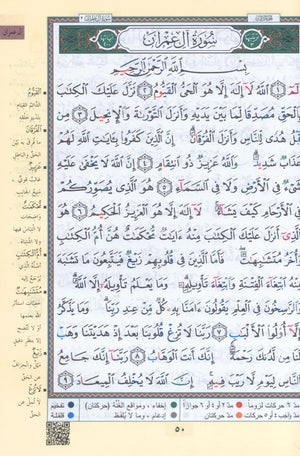 سُورَةُ آلِ عِمْرَان
بِسْمِ ٱللَّهِ ٱلرَّحْمَٰنِ ٱلرَّحِيمِ
الٓمٓ ۝١ ٱللَّهُ لَآ إِلَٰهَ إِلَّا هُوَ ٱلْحَىُّ ٱلْقَيُّومُ ۝٢ نَزَّلَ عَلَيْكَ ٱلْكِتَٰبَ
بِٱلْحَقِّ مُصَدِّقًا لِّمَا بَيْنَ يَدَيْهِ وَأَنزَلَ ٱلتَّوْرَىٰةَ وَٱلْإِنجِيلَ ۝٣ مِن
قَبْلُ هُدًى لِّلنَّاسِ وَأَنزَلَ ٱلْفُرْقَانَ ۗ إِنَّ ٱلَّذِينَ كَفَرُوا۟ بِـَٔايَٰتِ ٱللَّهِ لَهُمْ
عَذَابٌ شَدِيدٌ ۗ وَٱللَّهُ عَزِيزٌ ذُو ٱنتِقَامٍ ۝٤ إِنَّ ٱللَّهَ لَا يَخْفَىٰ عَلَيْهِ
شَىْءٌ فِى ٱلْأَرْضِ وَلَا فِى ٱلسَّمَآءِ ۝٥ هُوَ ٱلَّذِى يُصَوِّرُكُمْ
فِى ٱلْأَرْحَامِ كَيْفَ يَشَآءُ ۚ لَآ إِلَٰهَ إِلَّا هُوَ ٱلْعَزِيزُ ٱلْحَكِيمُ ۝٦ هُوَ
ٱلَّذِىٓ أَنزَلَ عَلَيْكَ ٱلْكِتَٰبَ مِنْهُ ءَايَٰتٌ مُّحْكَمَٰتٌ هُنَّ أُمُّ ٱلْكِتَٰبِ
وَأُخَرُ مُتَشَٰبِهَٰتٌ ۖ فَأَمَّا ٱلَّذِينَ فِى قُلُوبِهِمْ زَيْغٌ فَيَتَّبِعُونَ مَا تَشَٰبَهَ
مِنْهُ ٱبْتِغَآءَ ٱلْفِتْنَةِ وَٱبْتِغَآءَ تَأْوِيلِهِۦ ۗ وَمَا يَعْلَمُ تَأْوِيلَهُۥٓ إِلَّا ٱللَّهُ ۗ
وَٱلرَّٰسِخُونَ فِى ٱلْعِلْمِ يَقُولُونَ ءَامَنَّا بِهِۦ كُلٌّ مِّنْ عِندِ رَبِّنَا ۗ وَمَا يَذَّكَّرُ
إِلَّآ أُو۟لُوا۟ ٱلْأَلْبَٰبِ ۝٧ رَبَّنَا لَا تُزِغْ قُلُوبَنَا بَعْدَ إِذْ هَدَيْتَنَا وَهَبْ
لَنَا مِن لَّدُنكَ رَحْمَةً ۚ إِنَّكَ أَنتَ ٱلْوَهَّابُ ۝٨ رَبَّنَآ إِنَّكَ جَامِعُ
ٱلنَّاسِ لِيَوْمٍ لَّا رَيْبَ فِيهِ ۚ إِنَّ ٱللَّهَ لَا يُخْلِفُ ٱلْمِيعَادَ ۝٩
ٱلْقَيُّومُ
ٱلْفُرْقَانَ
مُّحْكَمَٰتٌ
أُمُّ ٱلْكِتَٰبِ
مُتَشَٰبِهَٰتٌ
زَيْغٌ
لَا تُزِغْ
مدّ ٦ حركات لزوماً
مدّ ٢ أو ٤ أو ٦ جوازاً
إخفاء، ومواقع الغنّة (حركتان)
تفخيم
مدّ واجب ٤ أو ٥ حركات
مدّ حركتان
إدغام، وما لا يُلفظ
قلقلة
٥٠